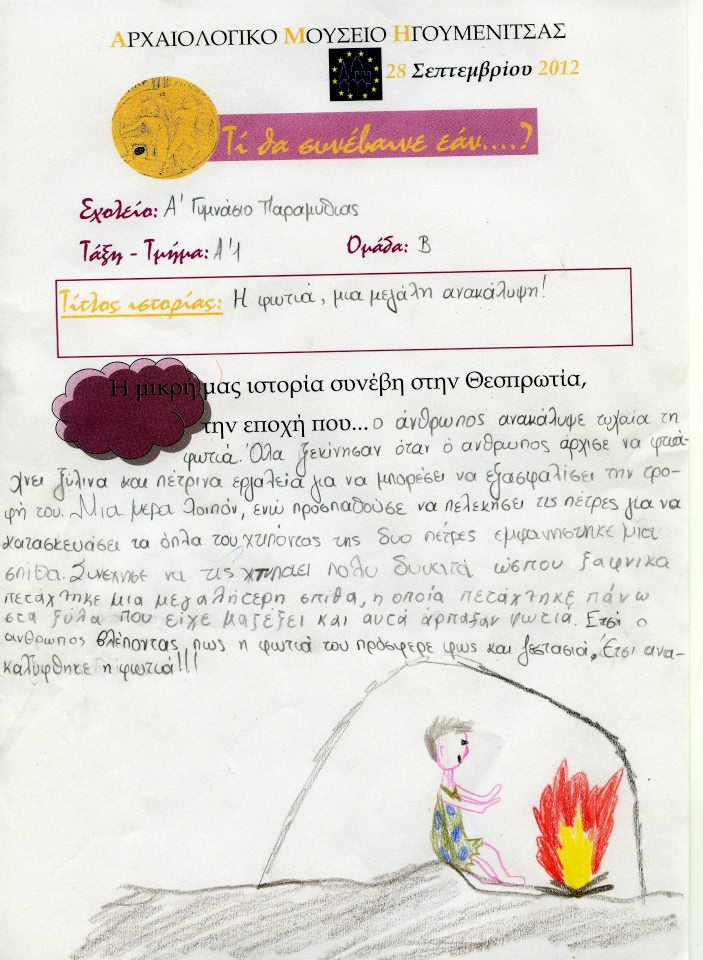 ΑΡΧΑΙΟΛΟΓΙΚΟ ΜΟΥΣΕΙΟ ΗΓΟΥΜΕΝΙΤΣΑΣ
28 Σεπτεμβρίου 2012
Τί θα συνέβαινε εάν....?
Σχολείο: Α' Γυμνάσιο Παραμυθιας
Τάξη - Τμήμα: Α'1 Ομάδα: Β
Τίτλος ιστορίας: Η φωτιά, μια μεγάλη ανακάλυψη!
Η μικρή μας ιστορία συνέβη στην Θεσπρωτία,
την εποχή που... ο άνθρωπος ανακάλυψε τυχαία τη
φωτιά. Όλα ξεκίνησαν όταν ο άνθρωπος άρχισε να φτιά-
χνει ξύλινα και πέτρινα εργαλεία για να μπορέσει να εξασφαλίσει την τρο-
φή του. Μια μερα λοιπόν, ενώ προσπαθούσε να πελεκήσει τις πέτρες για να
κατασκευάσει τα όπλα του χτυπόντας της δυο πέτρες εμφανηστηκε μια
σπίθα. Συνέχησε να τις χτυπάει πολυ δυνατά ώσπου ξαφνικα
πετάχτηκε μια μεγαλήτερη σπίθα, η οποία πετάχτηκε πάνω
στα ξύλα που είχε μαζέξει και αυτά άρπαξαν φωτιά. Ετσι ο
άνθρωπος βλέποντας πως η φωτιά του πρόσφερε φως και ζεστασιά. Έτσι ανα-
καλύφθηκε η φωτιά!!!